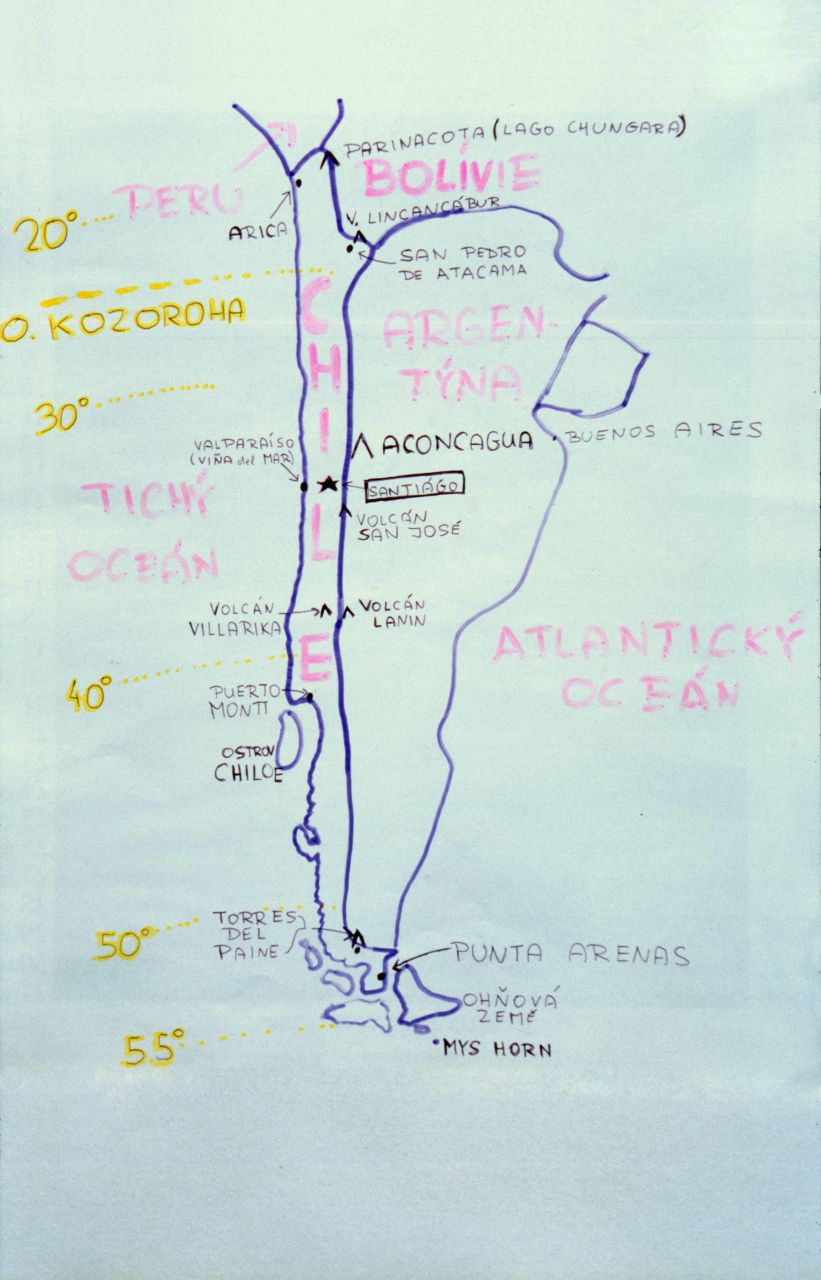 PARINACOTA (LAGO CHUNGARA)
BOLÍVIE
PERU
V. LINCANCÁBUR
20°
ARICA
SAN PEDRO
DE ATACAMA
O. KOZOROHA
CHILE
ARGEN-
TÝNA
30°
VALPARAÍSO
(VIÑA del MAR)
ACONCAGUA
BUENOS AIRES
SANTIÁGO
TICHÝ
OCEÁN
VOLCÁN
SAN JOSÉ
VOLCÁN
VILLARIKA
VOLCÁN
LANIN
ATLANTICKÝ
OCEÁN
40°
PUERTO
MONTT
OSTROV
CHILOE
50°
TORRES
DEL
PAINE
PUNTA ARENAS
OHŇOVÁ
ZEMĚ
55°
MYS HORN